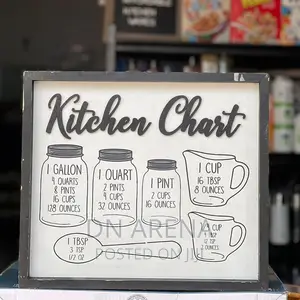 Kitchen Chart
1 GALLON
4 QUARTS
8 PINTS
16 CUPS
128 OUNCES
1 QUART
2 PINTS
4 CUPS
32 OUNCES
1 PINT
2 CUPS
16 OUNCES
1 CUP
16 TBSP
8 OUNCES
1 TBSP
3 TSP
1/2 OZ
DN ARENA
POSTED ON JIJI